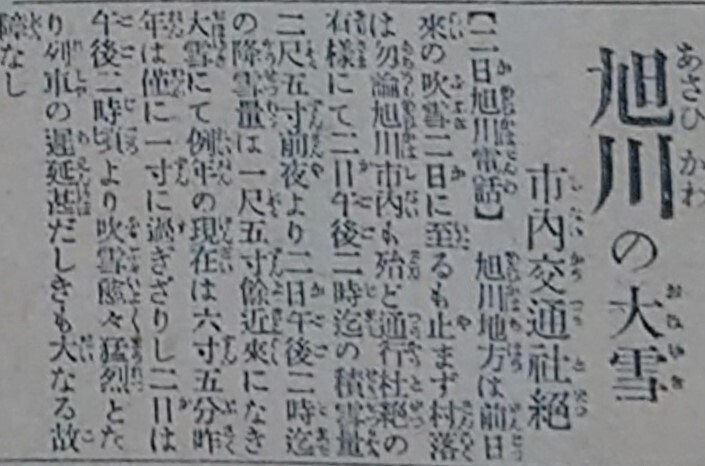 旭川の大雪
市内交通杜絕
【二日旭川電話】旭川地方は前日
來の吹雪二日に至るも止まず村落
は勿論旭川市内も殆ど通行杜絕の
有樣にて二日午後二時迄の積雪量
二尺五寸前夜より二日午後二時迄
の降雪量は一尺五寸餘近來になき
大雪にて例年の現在は六寸五分昨
年は僅に一寸に過ぎざりし二日は
午後二時頃より吹雪愈々猛烈とな
り列車の遲延甚だしきも大なる故
障なし